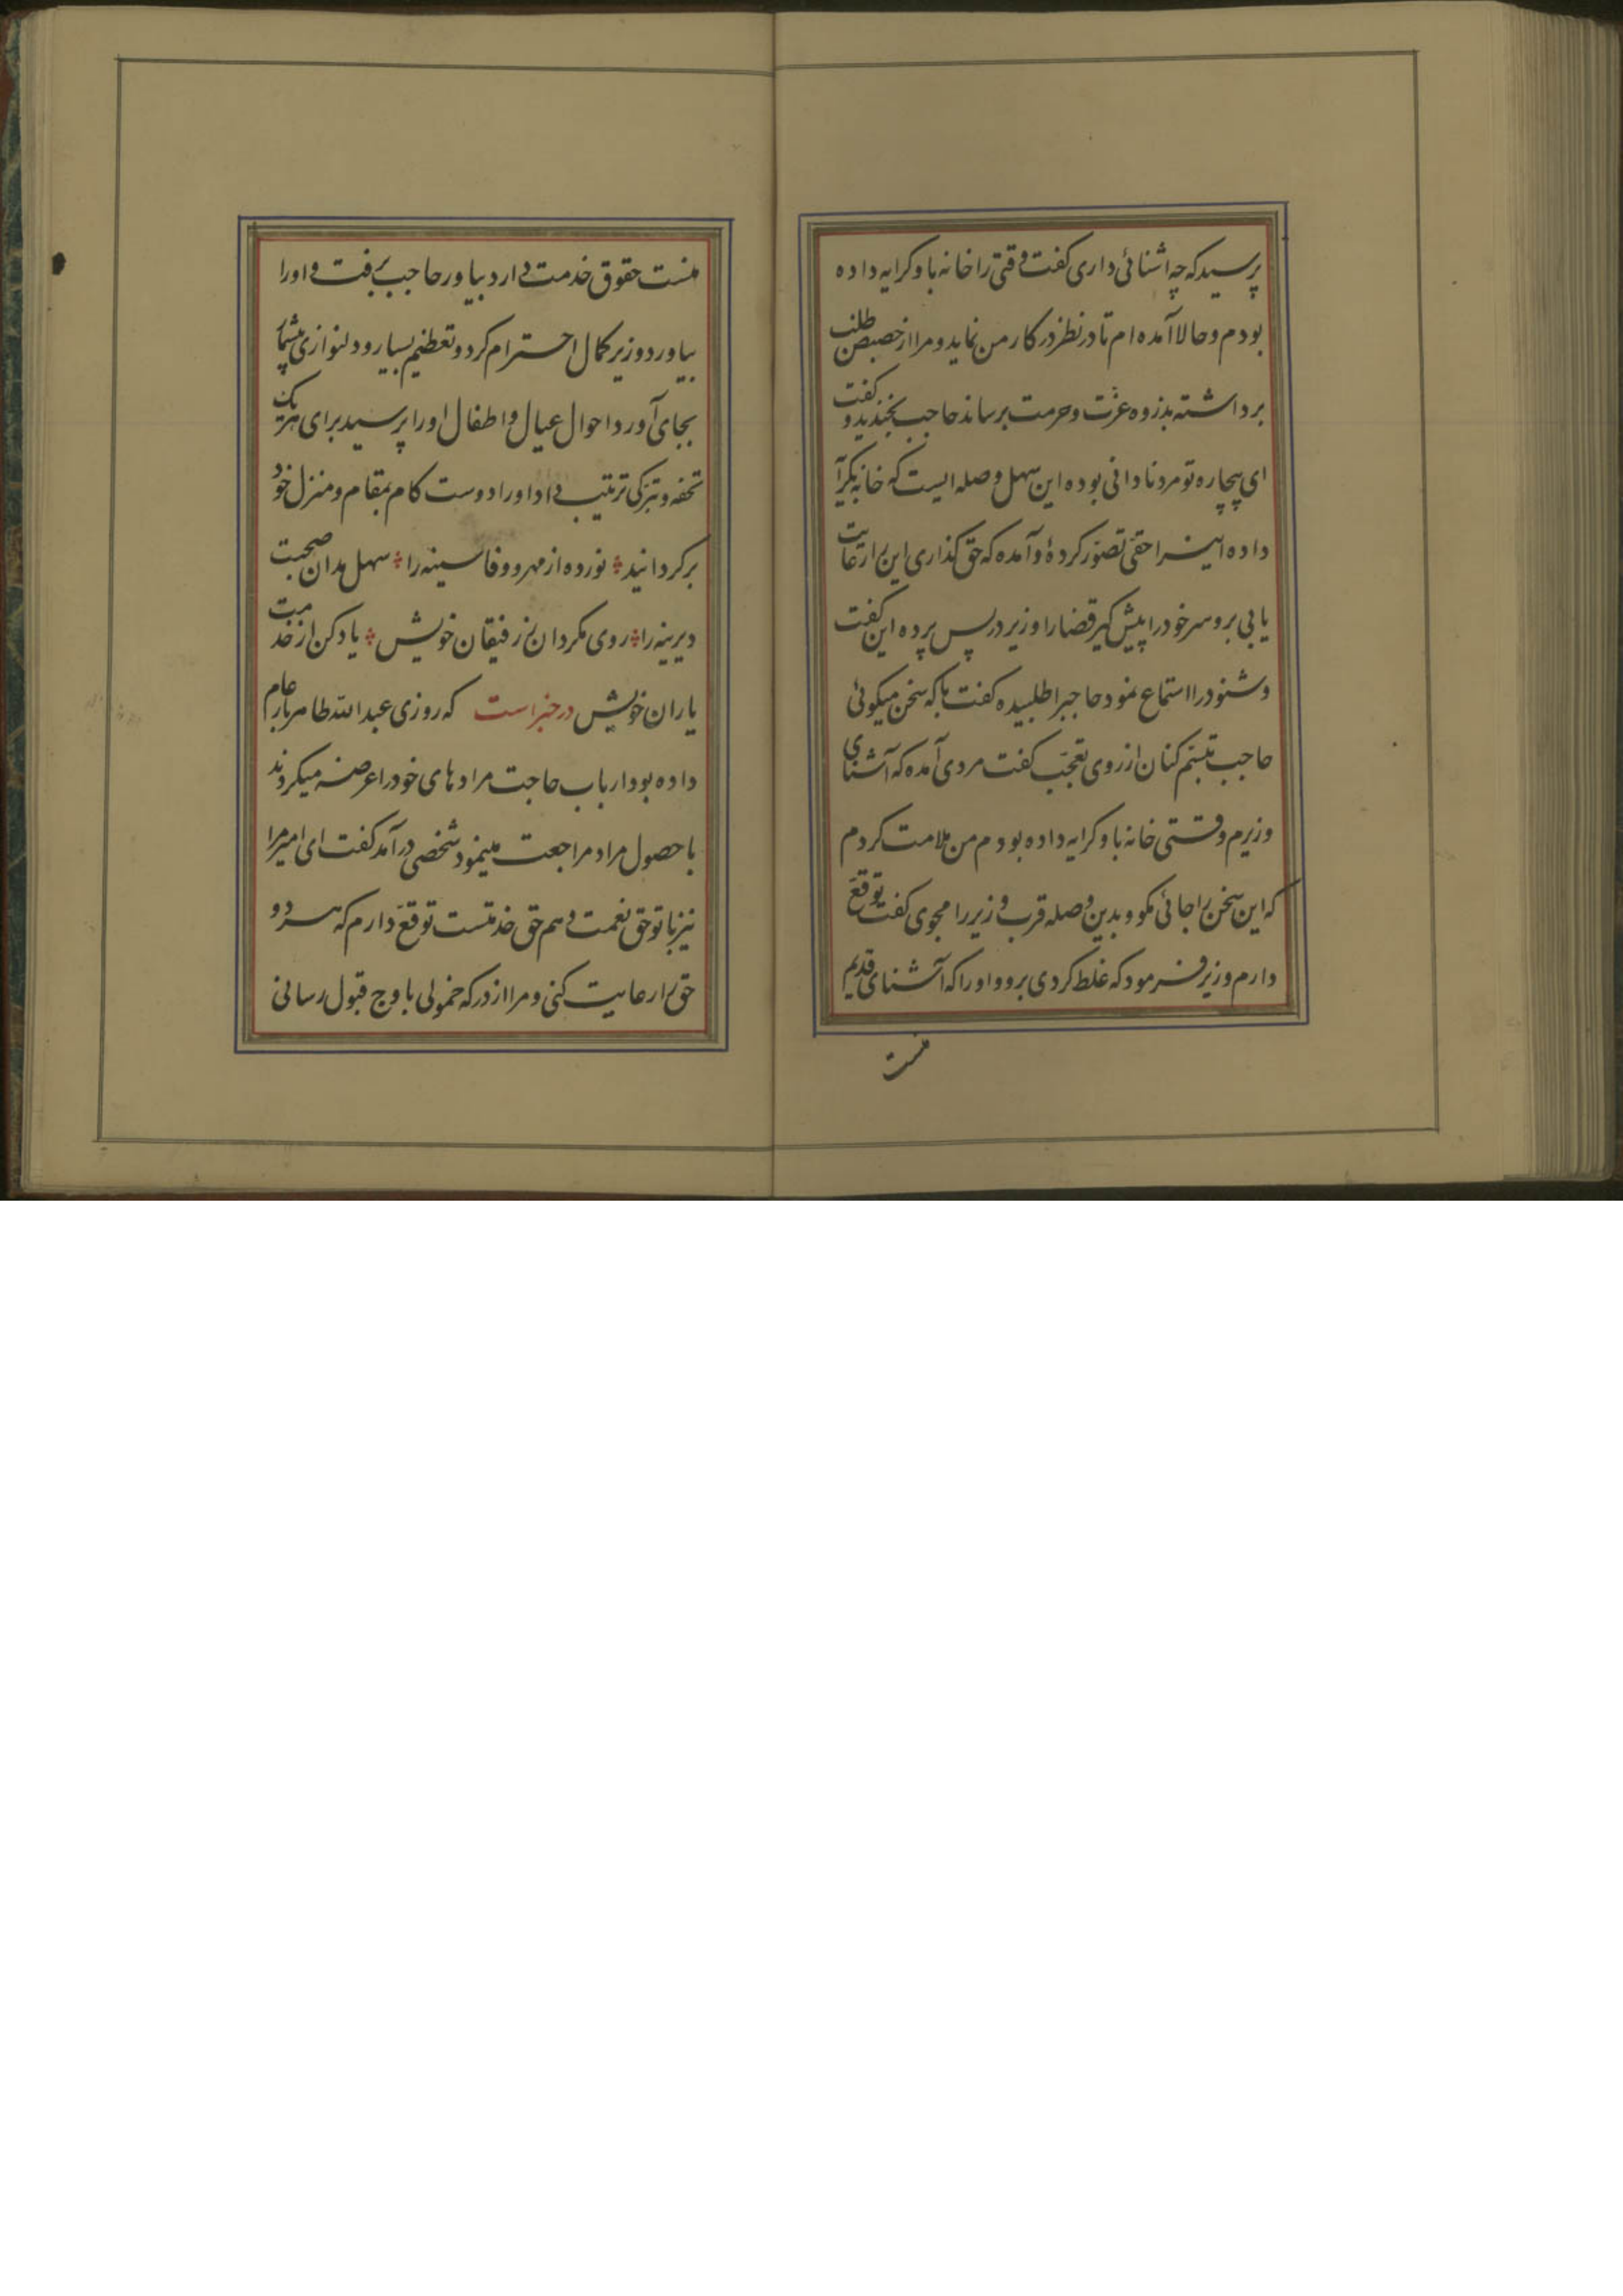 پرسید که چه اشنائی داری کفت وقتی را خانه باو کرایه داده
بودم و حالا آمده ام تا در نظر در کار من نماید و مرا از حضیض طلب
برداشته بذروه عزت و حرمت برساند حاجب بخندید و کفت
ای بیچاره تو مرد نادانی بوده این سهل وصله ایست که خانه بکرا
داده اینرا حقی تصور کردهٔ و آمده که حق کذاری این را رعایت
یابی برو سر خود را پیش کیر قضا را وزیر در پس پرده این کفت
و شنود را استماع نمود حاجبرا طلبیده کفت با که سخن میکوئی
حاجب تبسم کنان از روی تعجب کفت مردی آمده که آشنای
وزیرم وقتی خانه باو کرایه داده بودم من ملامت کردم
که این سخن را جائی مکو و بدین وصله قرب وزیر را مجوی کفت توقع
دارم وزیر فرمود که غلط کردی برو و او را که آشنای قدیم
منست
منست حقوق خدمت دارد بیاور حاجب برفت و اورا
بیاورد وزیر کمال احترام کرد و تعظیم بسیار و دلنوازی بیشمار
بجای آورد احوال عیال و اطفال اورا پرسید برای هر یک
تحفه و تبرکی ترتیب داد اورا دوست کام بمقام و منزل خود
برکردانید نور ده از مهر و وفا سینه را سهل مدان صحبت
دیرینه را روی مکردان ز رفیقان خویش یاد کن از خدمت
یاران خویش در خبر است که روزی عبدالله طاهر بار عام
داده بود ارباب حاجت مرادهای خود را عرضه میکردند
با حصول مراد مراجعت مینمود شخصی درآمد کفت ای امیر مرا
نیز با تو حق نعمت و هم حق خدمتست توقع دارم که هر دو
حق را رعایت کنی و مرا از درکه خمولی باوج قبول رسانی